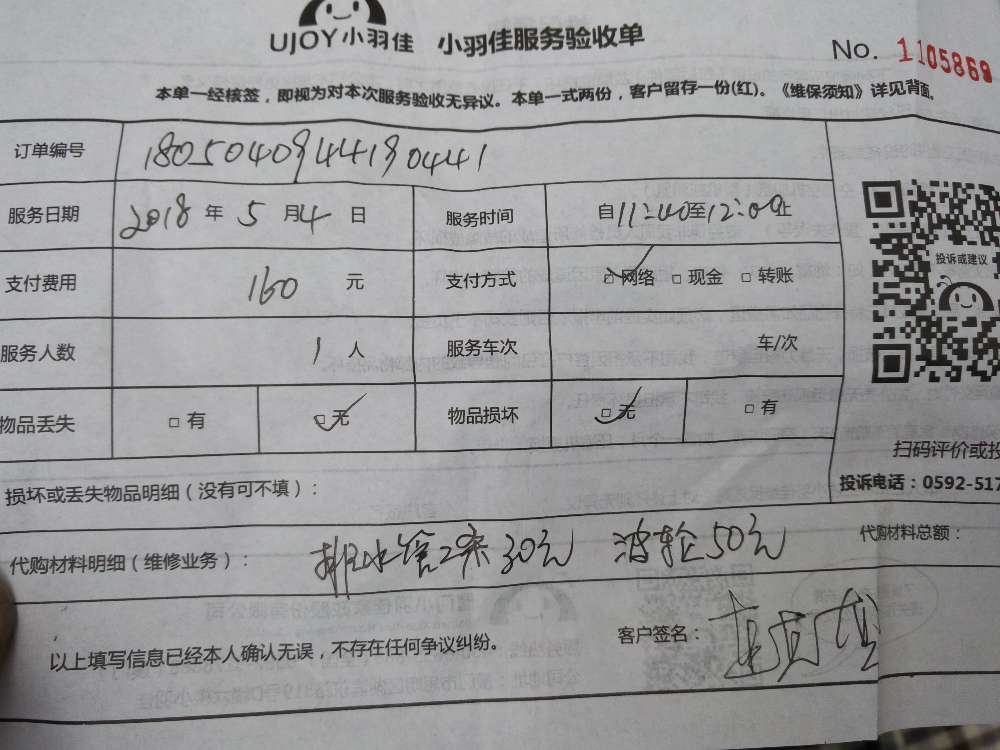 UJOY小羽佳 小羽佳服务验收单
No. 1105869
本单一经核签，即视为对本次服务验收无异议。本单一式两份，客户留存一份(红)。《维保须知》详见背面。
订单编号 1805040944190441
服务日期 2018年5月4日 服务时间 自11:40至12:00止
支付费用 160元 支付方式 □网络 □现金 □转账
服务人数 1人 服务车次 车/次
物品丢失 □有 □无 物品损坏 □无 □有
投诉或建议
扫码评价或投
损坏或丢失物品明细（没有可不填）：
投诉电话：0592-517
代购材料明细（维修业务）： 排水管2条30元 波轮50元
代购材料总额：
以上填写信息已经本人确认无误，不存在任何争议纠纷。
客户签名：